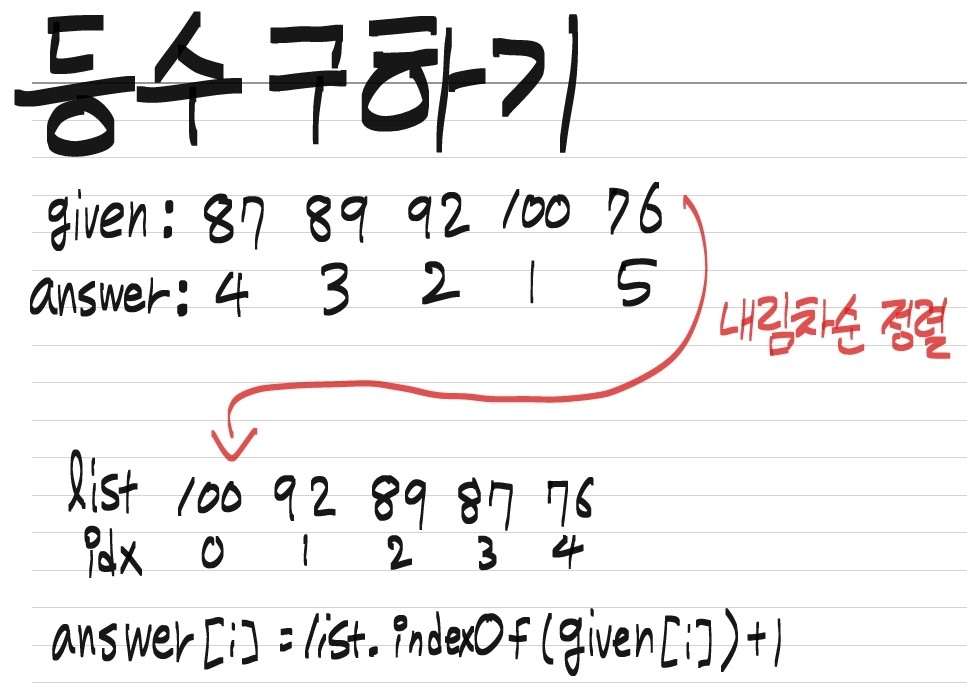 등수구하기
given: 87 89 92 100 76
answer: 4 3 2 1 5
내림차순 정렬
list 100 92 89 87 76
idx 0 1 2 3 4
answer[i] = list.indexOf(given[i])+1